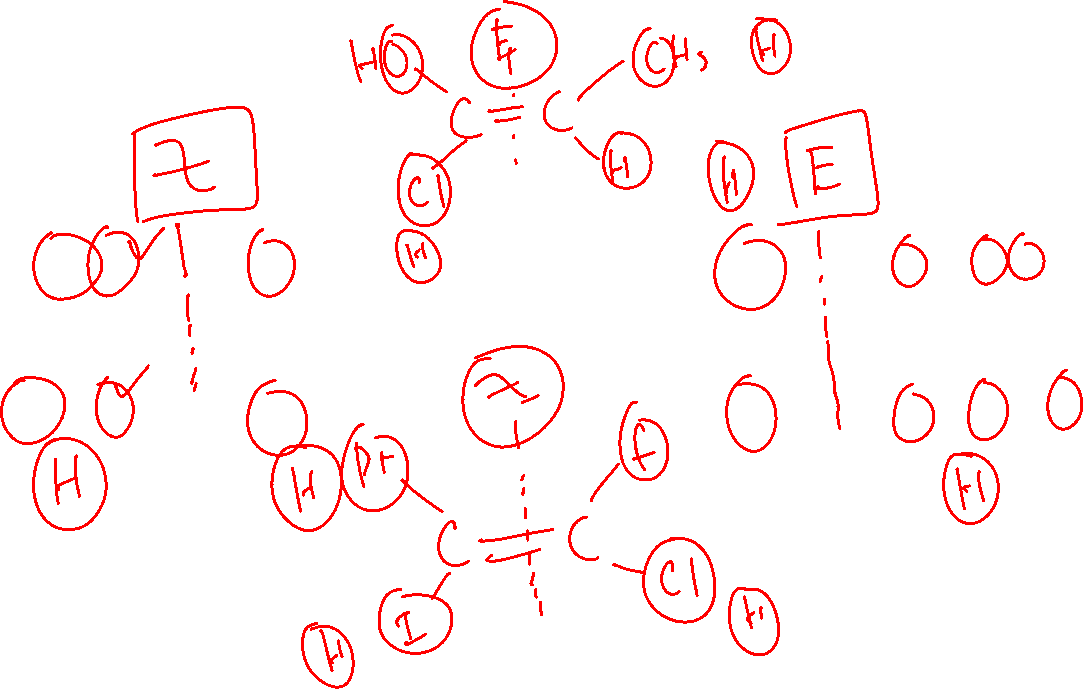 HO E CH3 H
C = C
Z Cl H H E
H
Z
H H Br F H
C = C
I Cl H
H